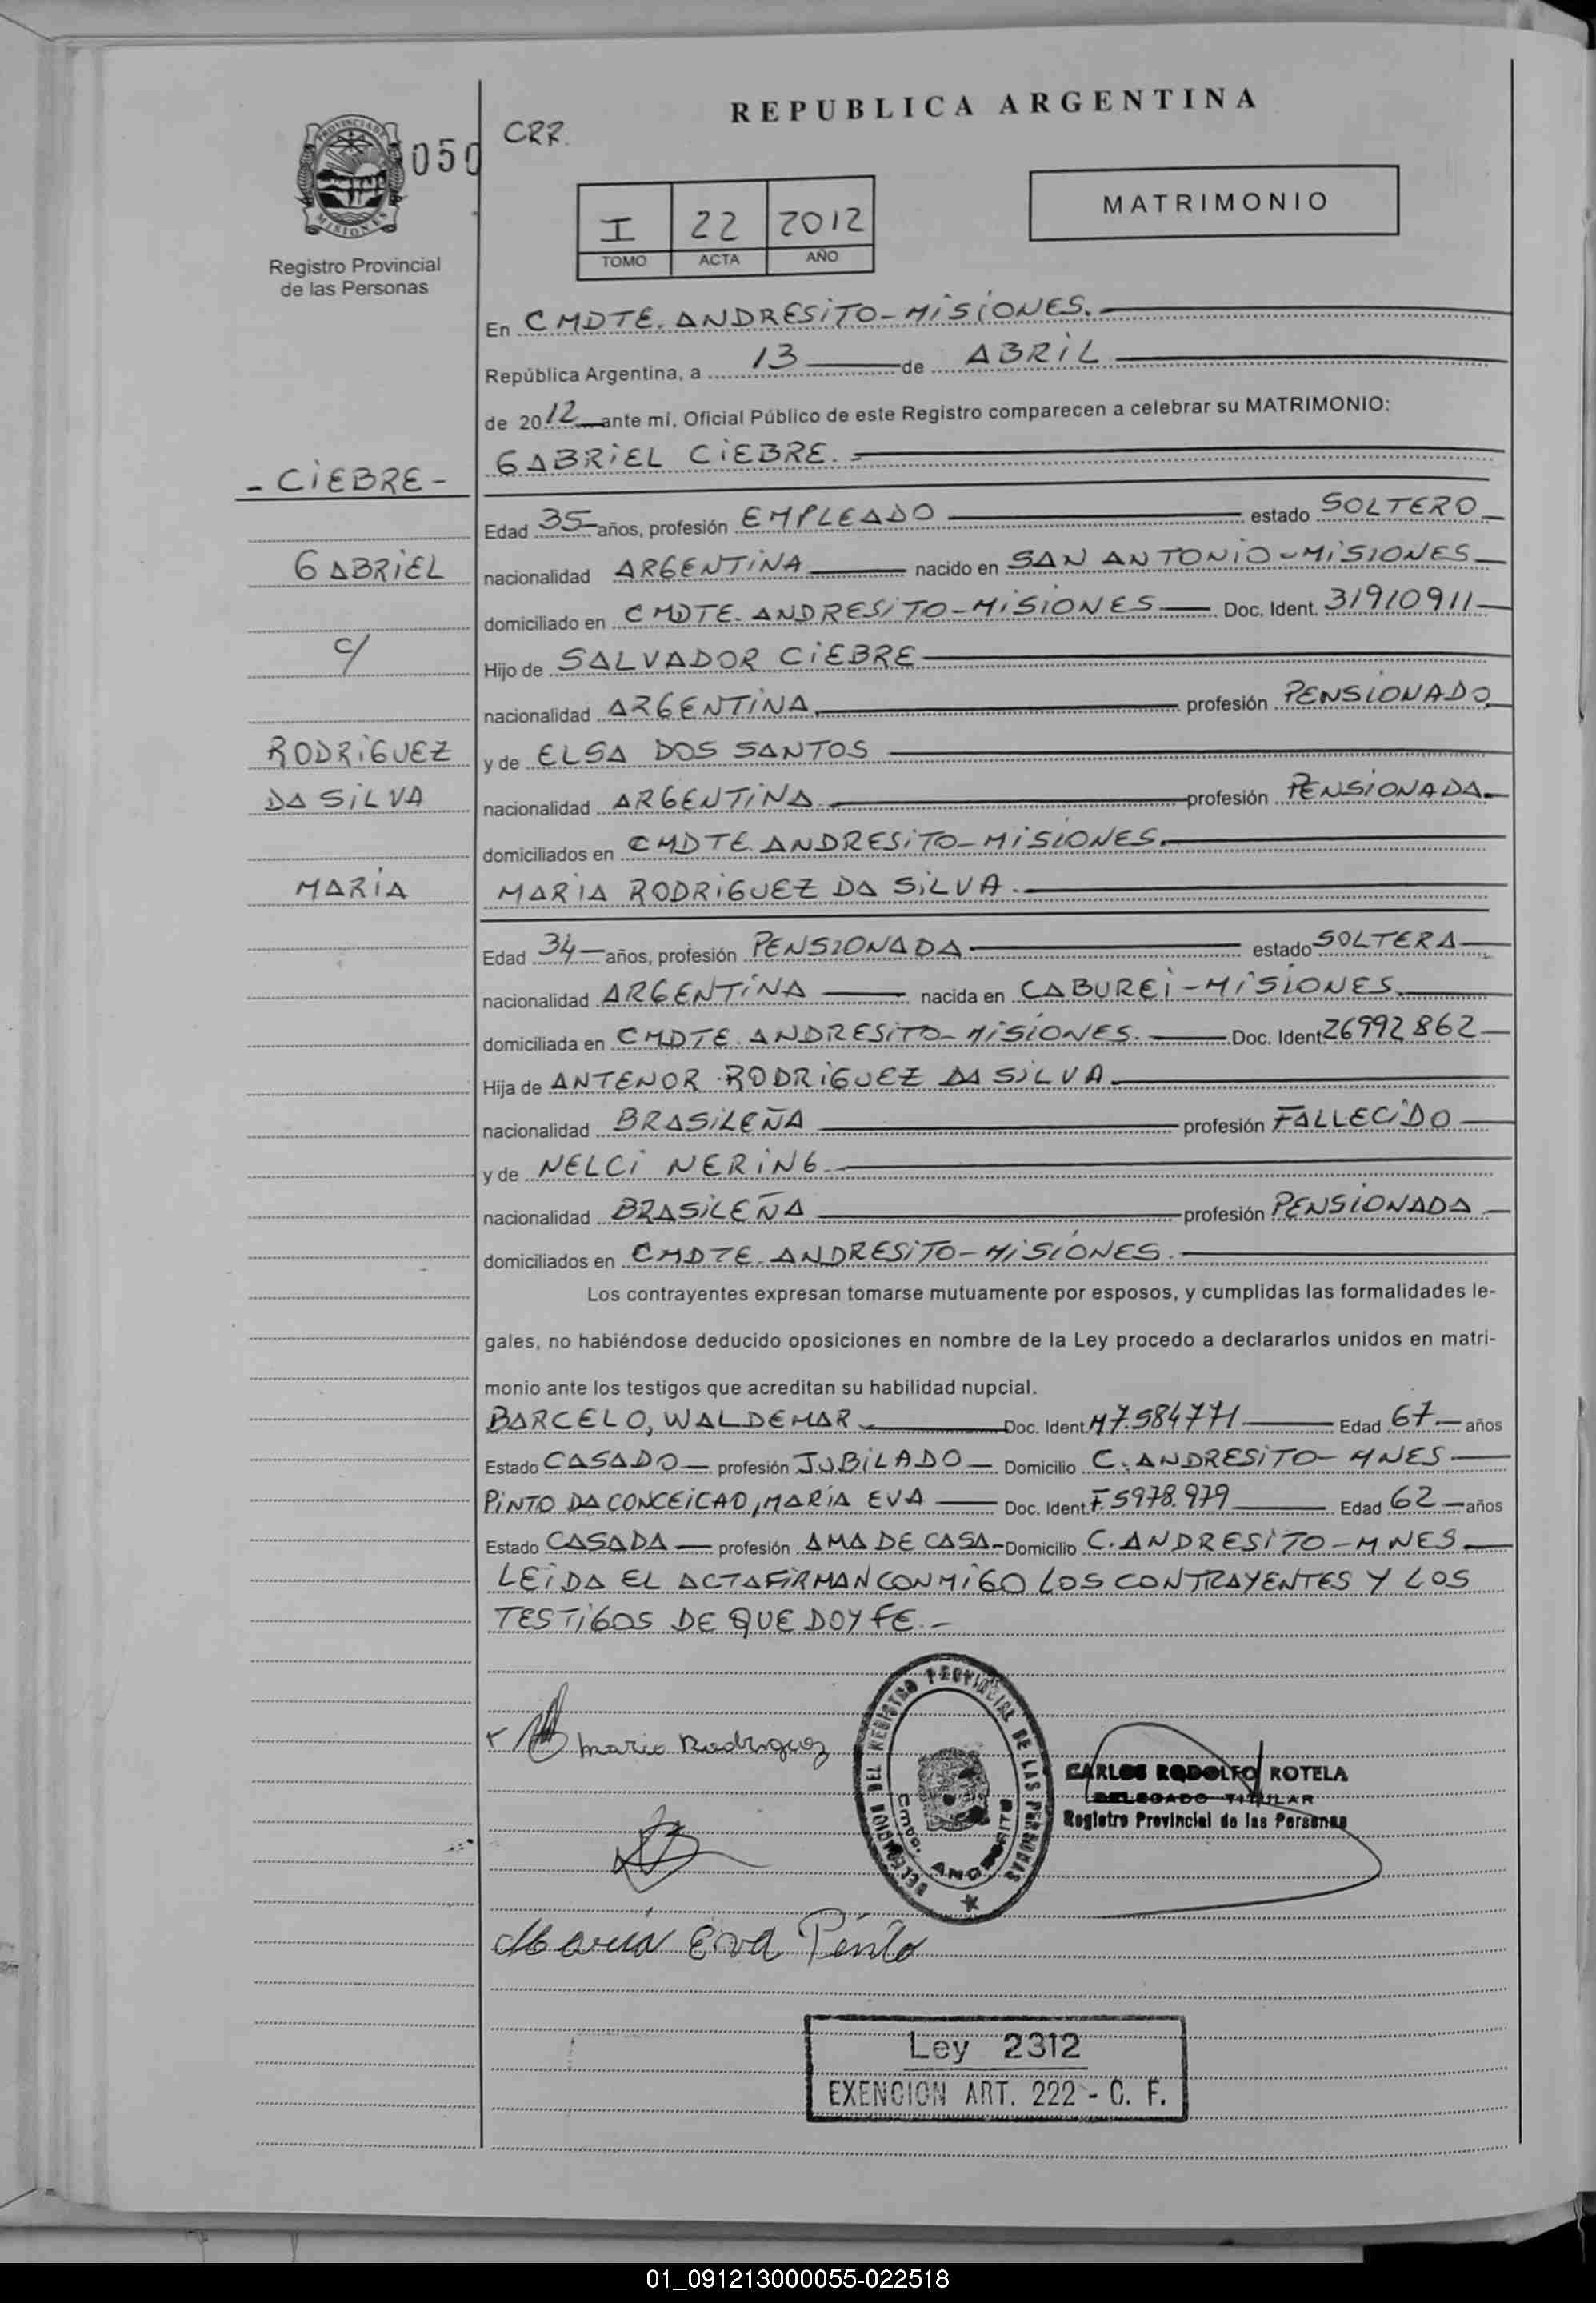 REPUBLICA ARGENTINA
CRR.
050
PROVINCIA DE MISIONES
Registro Provincial
de las Personas
I 22 2012
TOMO ACTA AÑO
MATRIMONIO
En CMDTE. ANDRESITO-MISIONES.
República Argentina, a 13 de ABRIL
de 2012 ante mí, Oficial Público de este Registro comparecen a celebrar su MATRIMONIO:
GABRIEL CIEBRE.
- CIEBRE -
Edad 35 años, profesión EMPLEADO estado SOLTERO
GABRIEL
nacionalidad ARGENTINA nacido en SAN ANTONIO-MISIONES
domiciliado en CMDTE. ANDRESITO-MISIONES Doc. Ident. 31910911
c/
Hijo de SALVADOR CIEBRE
nacionalidad ARGENTINA. profesión PENSIONADO
RODRIGUEZ
y de ELSA DOS SANTOS
DA SILVA
nacionalidad ARGENTINA profesión PENSIONADA.
domiciliados en CMDTE. ANDRESITO-MISIONES.
MARIA
MARIA RODRIGUEZ DA SILVA.
Edad 34 años, profesión PENSIONADA estado SOLTERA
nacionalidad ARGENTINA nacida en CABUREI-MISIONES.
domiciliada en CMDTE. ANDRESITO-MISIONES. Doc. Ident 26992862
Hija de ANTENOR RODRIGUEZ DA SILVA.
nacionalidad BRASILEÑA profesión FALLECIDO
y de NELCI NERING.
nacionalidad BRASILEÑA profesión PENSIONADA
domiciliados en CMDTE. ANDRESITO-MISIONES.
Los contrayentes expresan tomarse mutuamente por esposos, y cumplidas las formalidades le-
gales, no habiéndose deducido oposiciones en nombre de la Ley procedo a declararlos unidos en matri-
monio ante los testigos que acreditan su habilidad nupcial.
BARCELO, WALDEMAR Doc. Ident. M7.584771 Edad 67 años
Estado CASADO profesión JUBILADO Domicilio C. ANDRESITO-MNES
PINTO DA CONCEICAO, MARIA EVA Doc. Ident. F.5978.979 Edad 62 años
Estado CASADA profesión AMA DE CASA Domicilio C. ANDRESITO-MNES
LEIDA EL ACTA FIRMAN CONMIGO LOS CONTRAYENTES Y LOS
TESTIGOS DE QUE DOY FE.-
Maria Rodriguez
DELEGACION DEL REGISTRO PROVINCIAL DE LAS PERSONAS
CMDO. ANDRESITO
CARLOS RODOLFO ROTELA
DELEGADO TITULAR
Registro Provincial de las Personas
Maria Eva Pinto
Ley 2312
EXENCION ART. 222 - C. F.
01_091213000055-022518